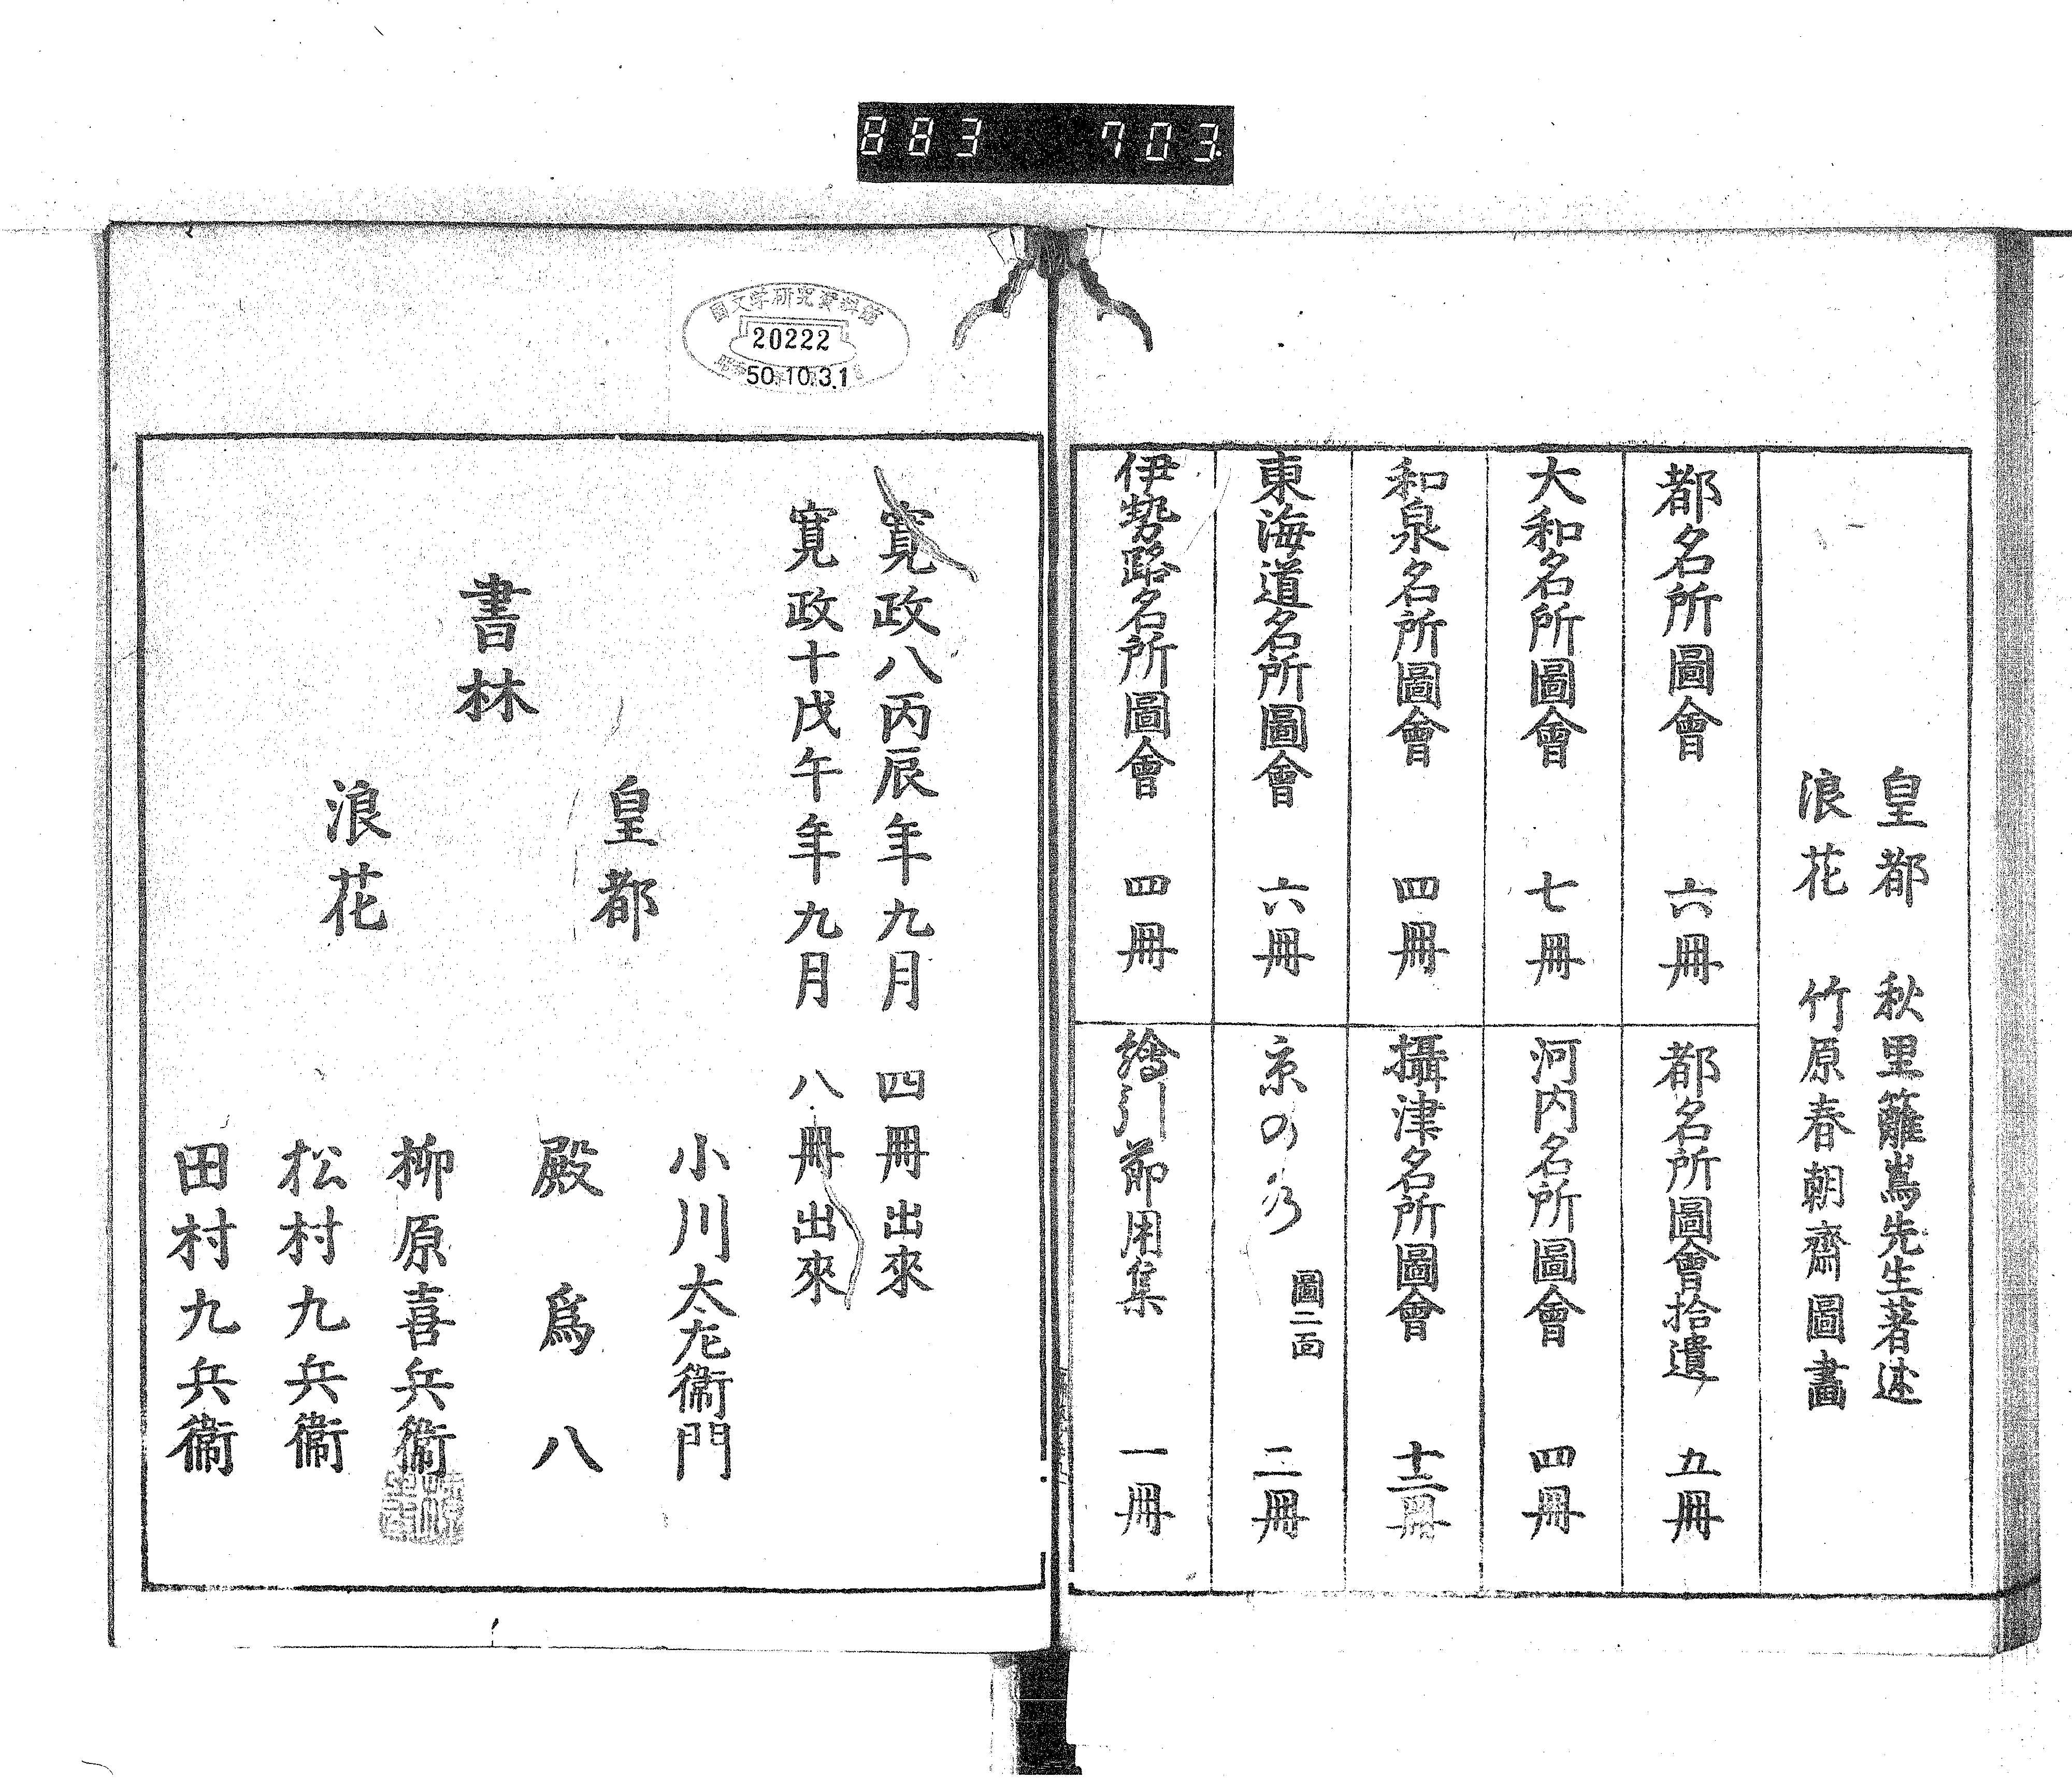 883 703
皇都 秋里籬嶌先生著述
浪花 竹原春朝齋圖畫
都名所圖會 六冊
都名所圖會拾遺 五冊
大和名所圖會 七冊
河内名所圖會 四冊
和泉名所圖會 四冊
攝津名所圖會 十二冊
東海道名所圖會 六冊
京の水 圖二面 二冊
伊勢路名所圖會 四冊
繪引節用集 一冊
國文学研究資料館
20222
50.10.31
寛政八丙辰年九月 四冊出來
寛政十戊午年九月 八冊出來
書林
皇都
小川太左衞門
殿爲八
浪花
柳原喜兵衞
松村九兵衞
田村九兵衞